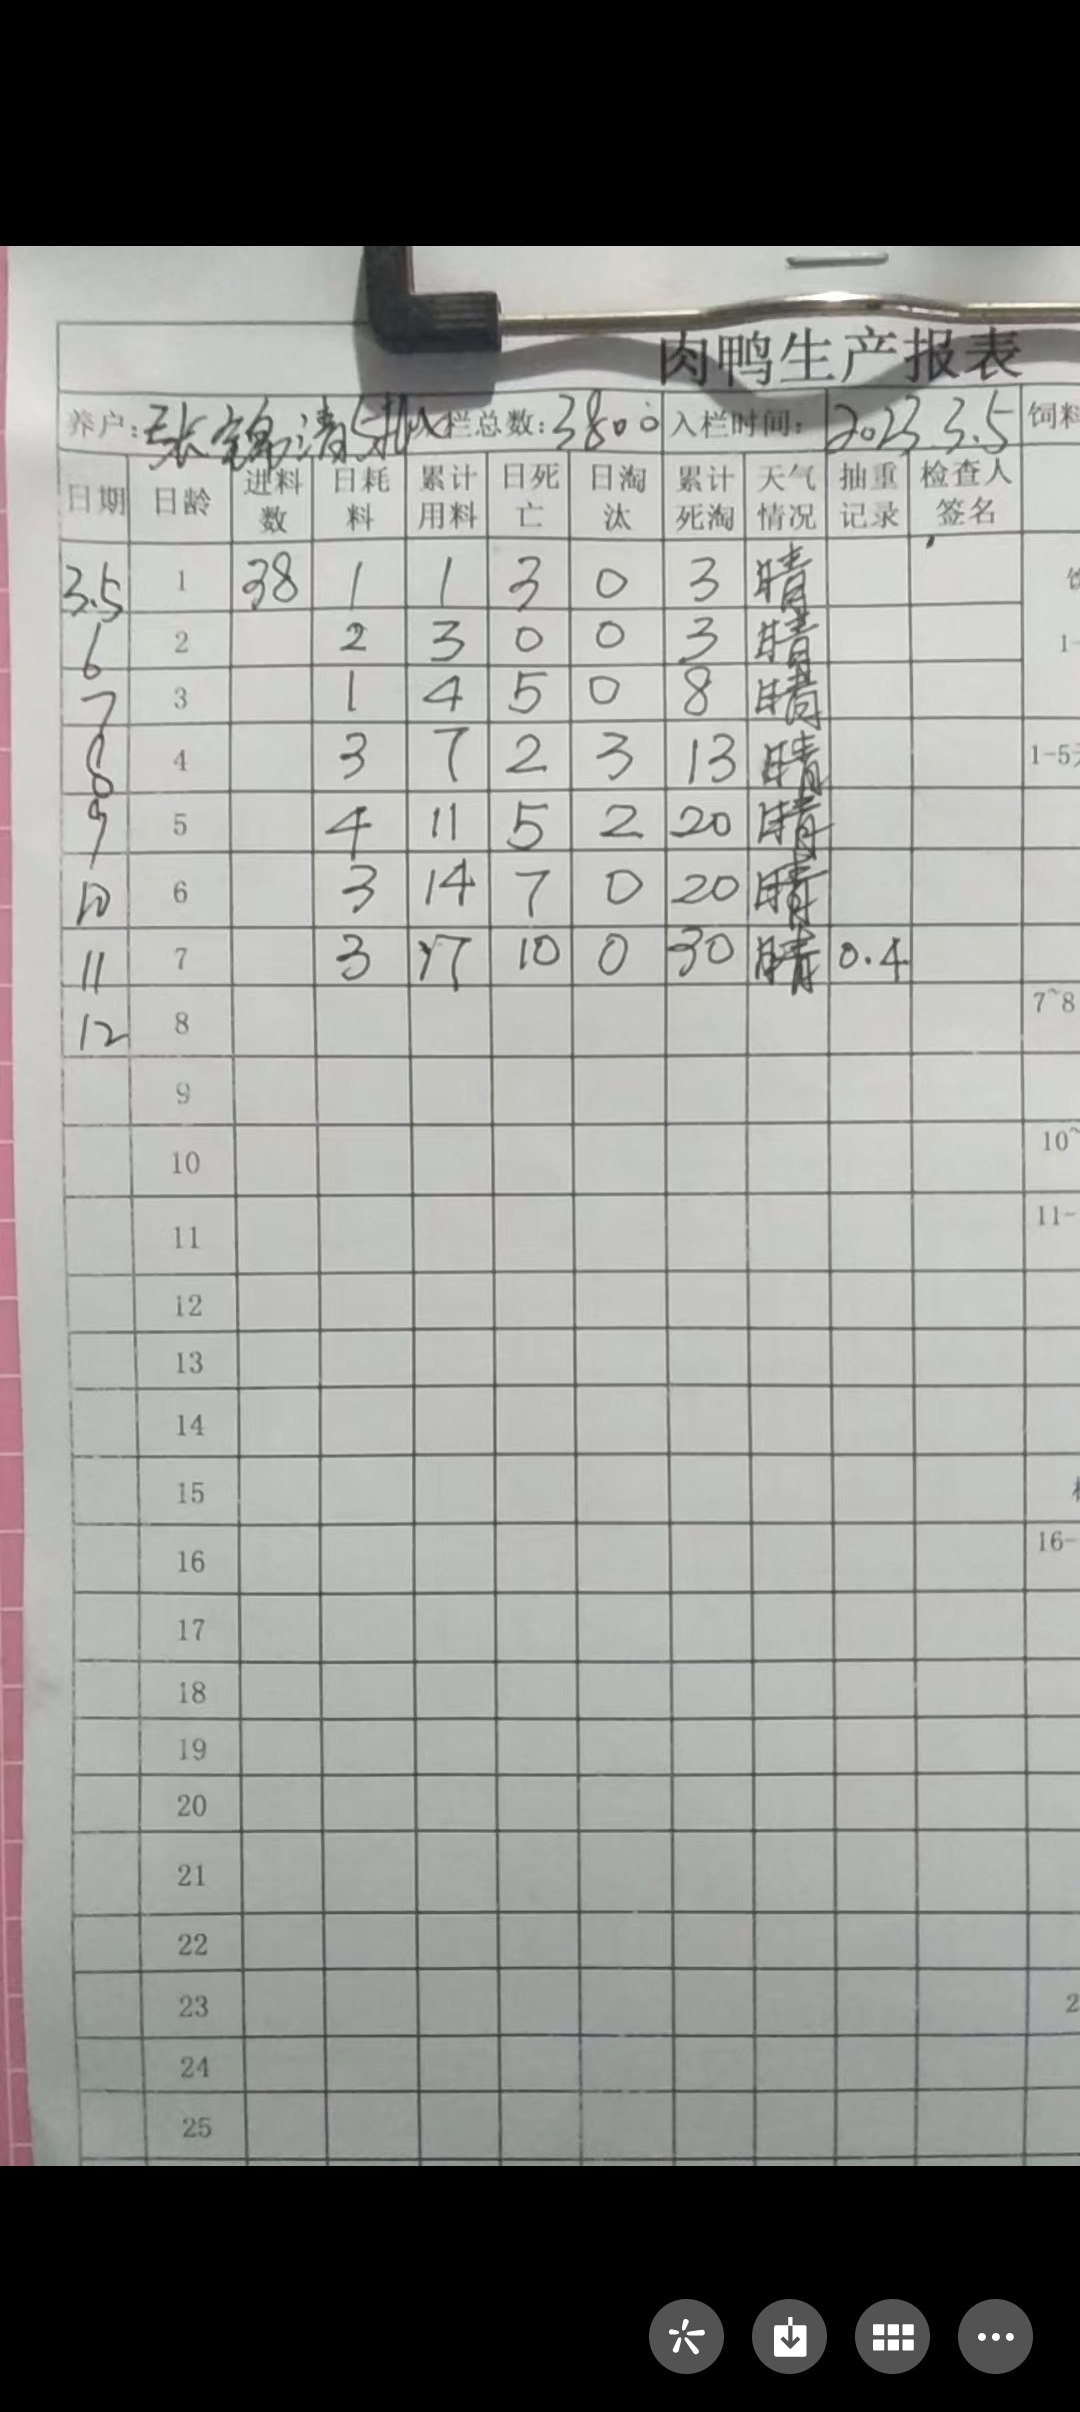 肉鸭生产报表
养户:张锦清5批 入栏总数:3800 入栏时间: 2023.3.5 饲料
日期 日龄 进料数 日耗料 累计用料 日死亡 日淘汰 累计死淘 天气情况 抽重记录 检查人签名
3.5 1 38 1 1 3 0 3 晴
6 2 2 3 0 0 3 晴 1-
7 3 1 4 5 0 8 晴
8 4 3 7 2 3 13 晴 1-5
9 5 4 11 5 2 20 晴
10 6 3 14 7 0 20 晴
11 7 3 17 10 0 30 晴 0.4
12 8 7~8
9
10 10~
11 11-
12
13
14
15
16 16-
17
18
19
20
21
22
23 2
24
25